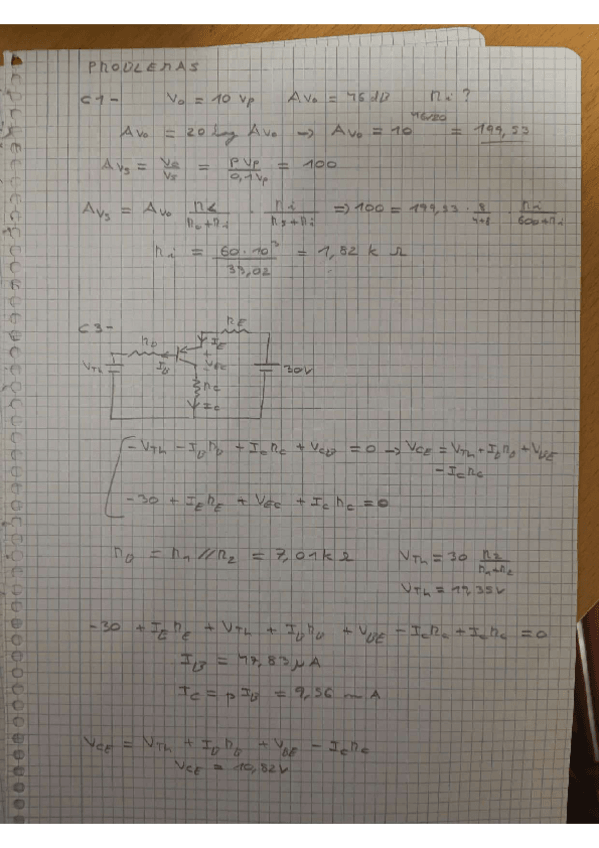 PROBLEMAS
C1- Vo = 10 Vp Avo = 46 dB Ri ?
Avo = 20 log Avo → Avo = 10^46/20 = 199,53
Avs = / Vs = / 0,1 Vp = 100
Avs = Avo RL / Ro+Ri · Ri / Rs+Ri ⇒ 100 = 199,53 · 8 / 4+8 · Ri / 600+Ri
Ri = 60·10³ / 33,02 = 1,82 k Ω
C3-
RE
RB IE
VTh IB VEC 30V
RC
IC
-VTh - IB RB + IC RC + VCB = 0 → VCE = VTh + IB RB + VBE - IC RC
-30 + IE RE + VEC + IC RC = 0
RB = R1 // R2 = 7,01 k Ω VTh = 30 R2 / R1+R2
VTh = 19,35V
-30 + IE RE + VTh + IB RB + VBE - IC RC + IC RC = 0
IB = 47,83 μA
IC = β IB = 9,56 mA
VCE = VTh + IB RB + VBE - IC RC
VCE = 10,82V